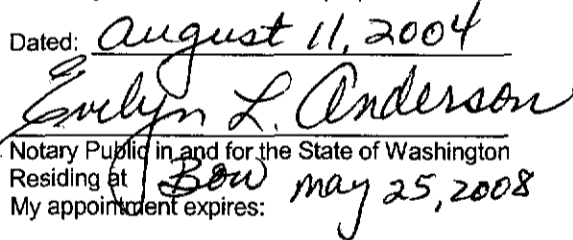 Dated: August 11, 2004
Evelyn L. Anderson
Notary Public in and for the State of Washington
Residing at Bow
My appointment expires: May 25, 2008